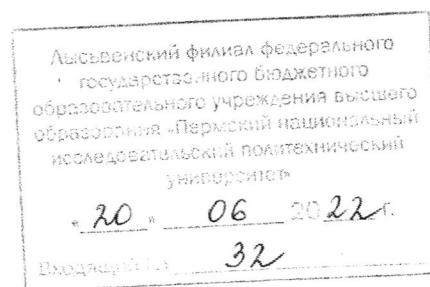 Лысьвенский филиал федерального
государственного бюджетного
образовательного учреждения высшего
образования «Пермский национальный
исследовательский политехнический
университет»
« 20 » 06 2022 г.
Входящий № 32